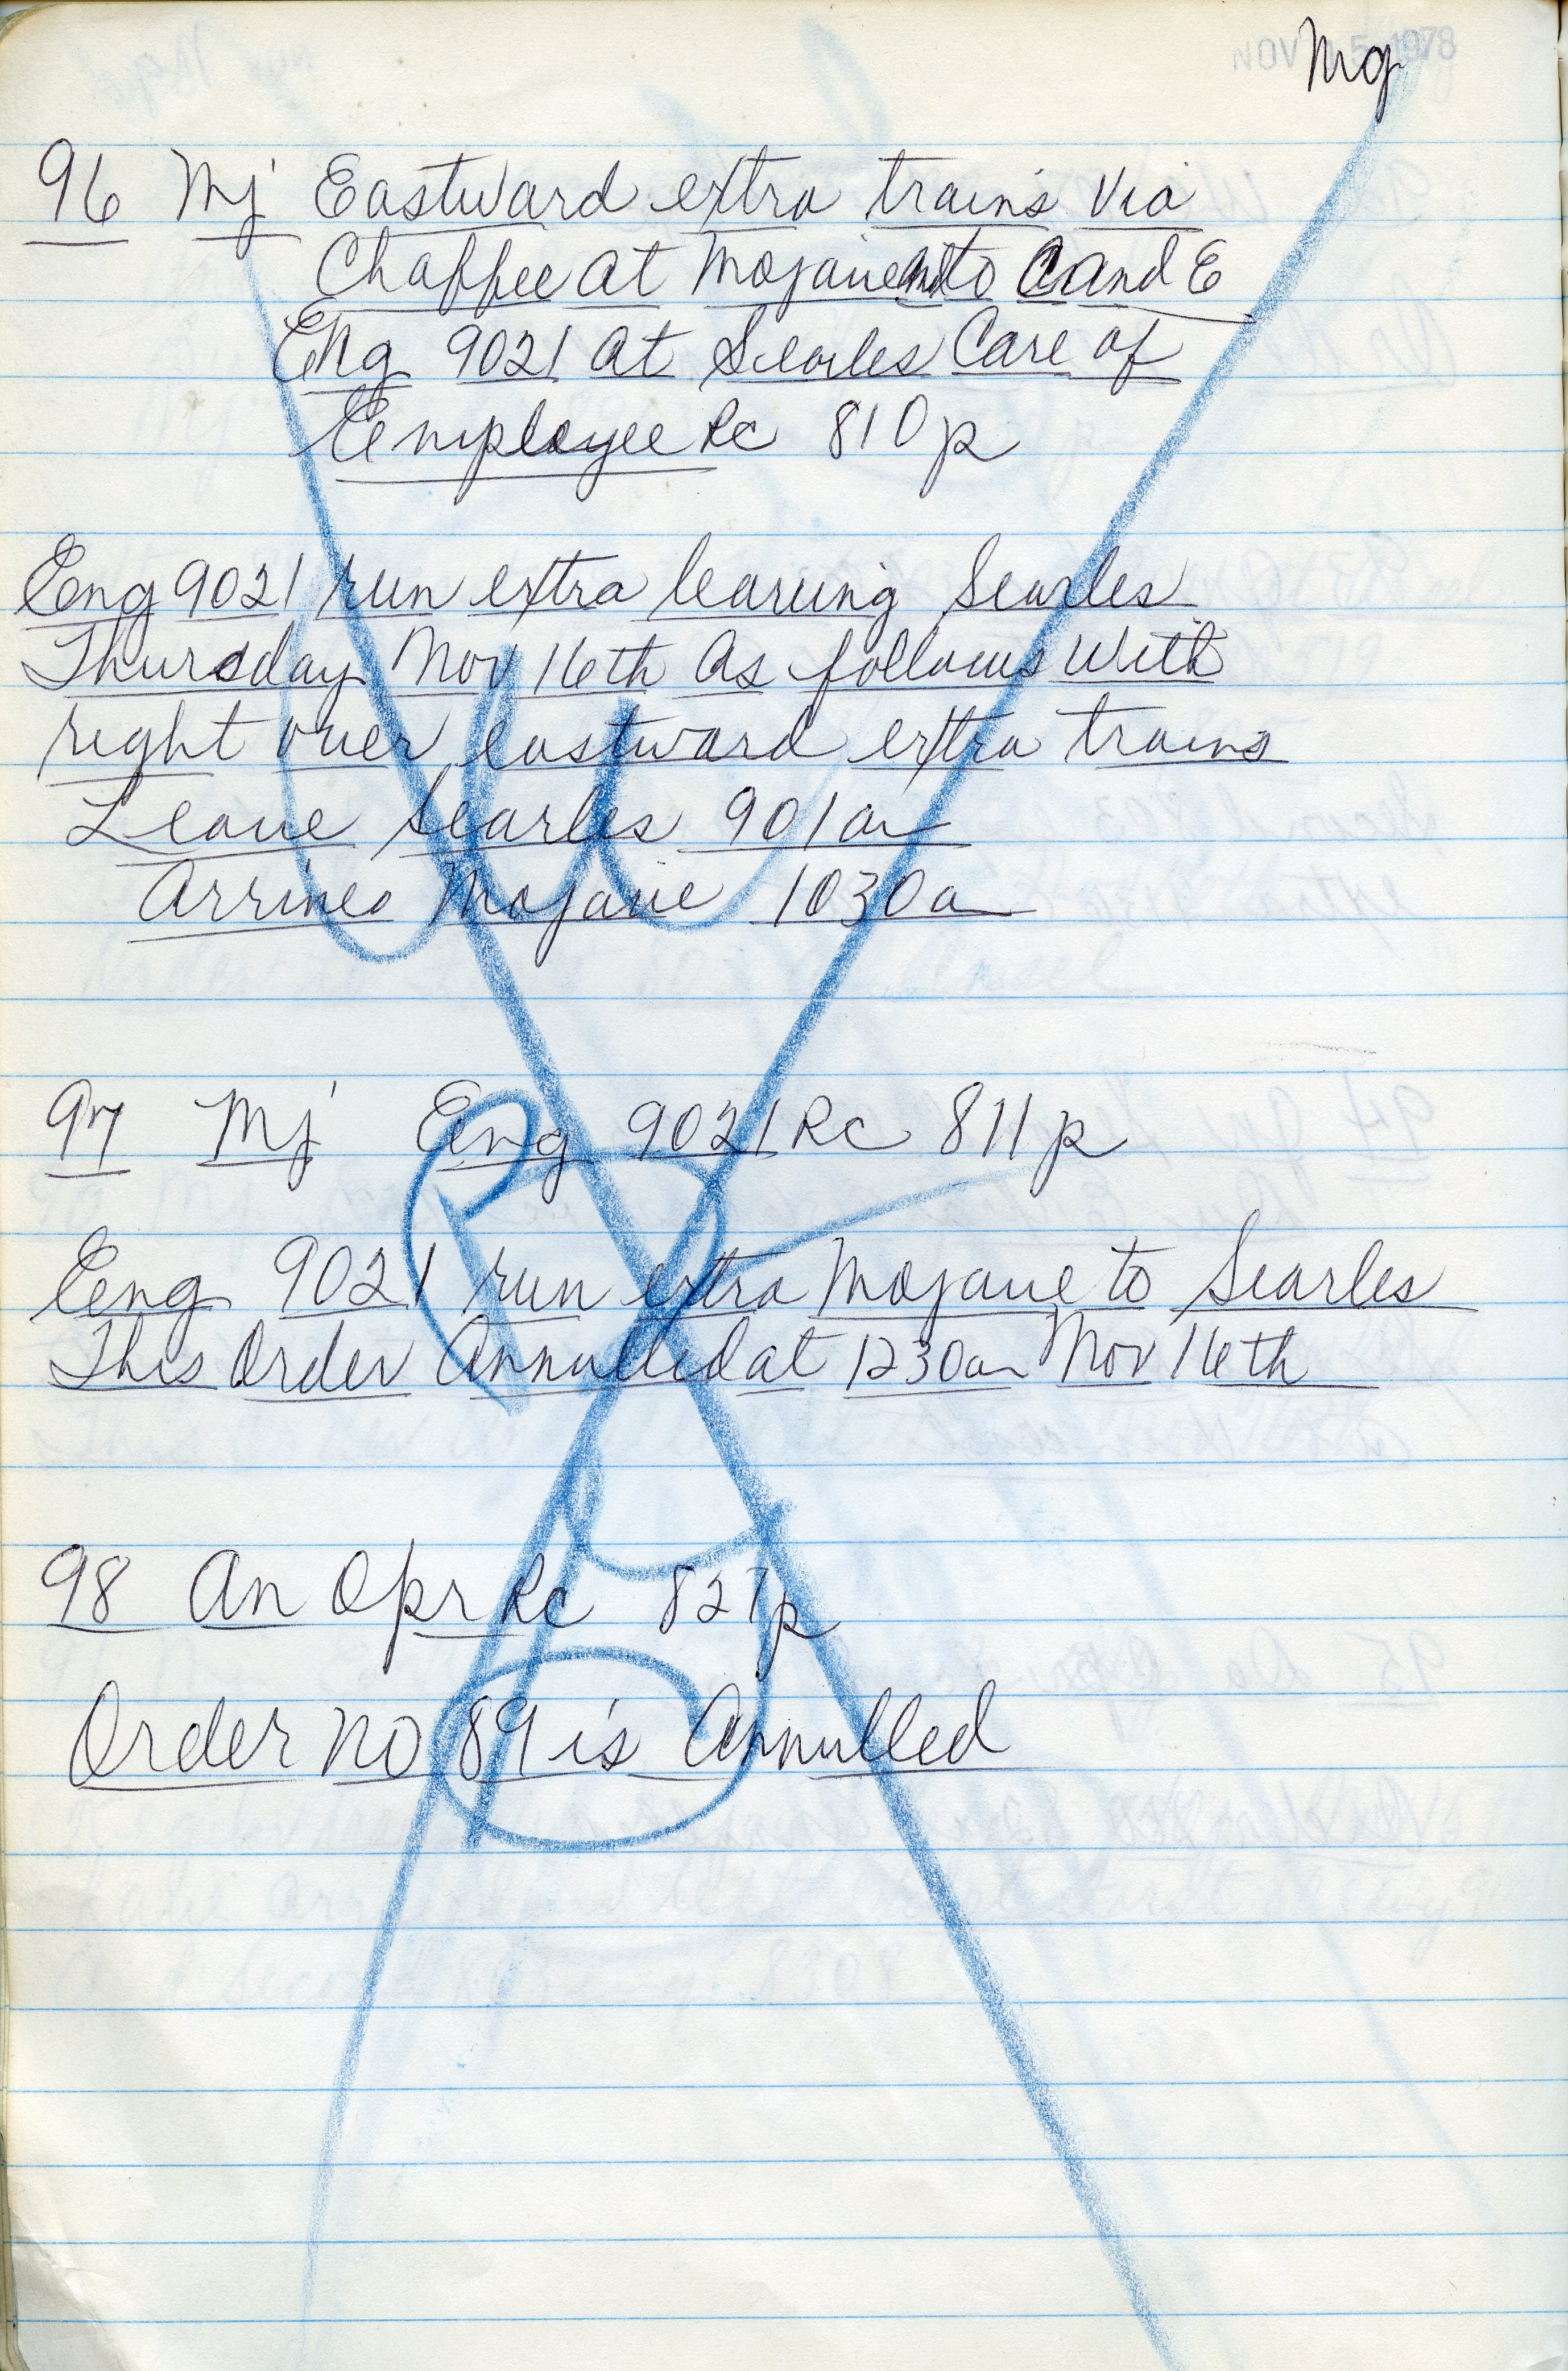 NOV 15 1978
Mg
96 Mj Eastward extra trains Via
Chaffee at Mojave And to C and E
Eng 9021 at Searles Care of
Employee Rc 810p
Eng 9021 run extra leaving Searles
Thursday Nov 16th As follows With
right over eastward extra trains
Leave Searles 901a
Arrives Mojave 1030a
97 Mj Eng 9021 Rc 811p
Eng 9021 run extra Mojave to Searles
This Order Annulled at 1230a Nov 16th
98 An Opr Rc 827p
Order No 89 is Annulled